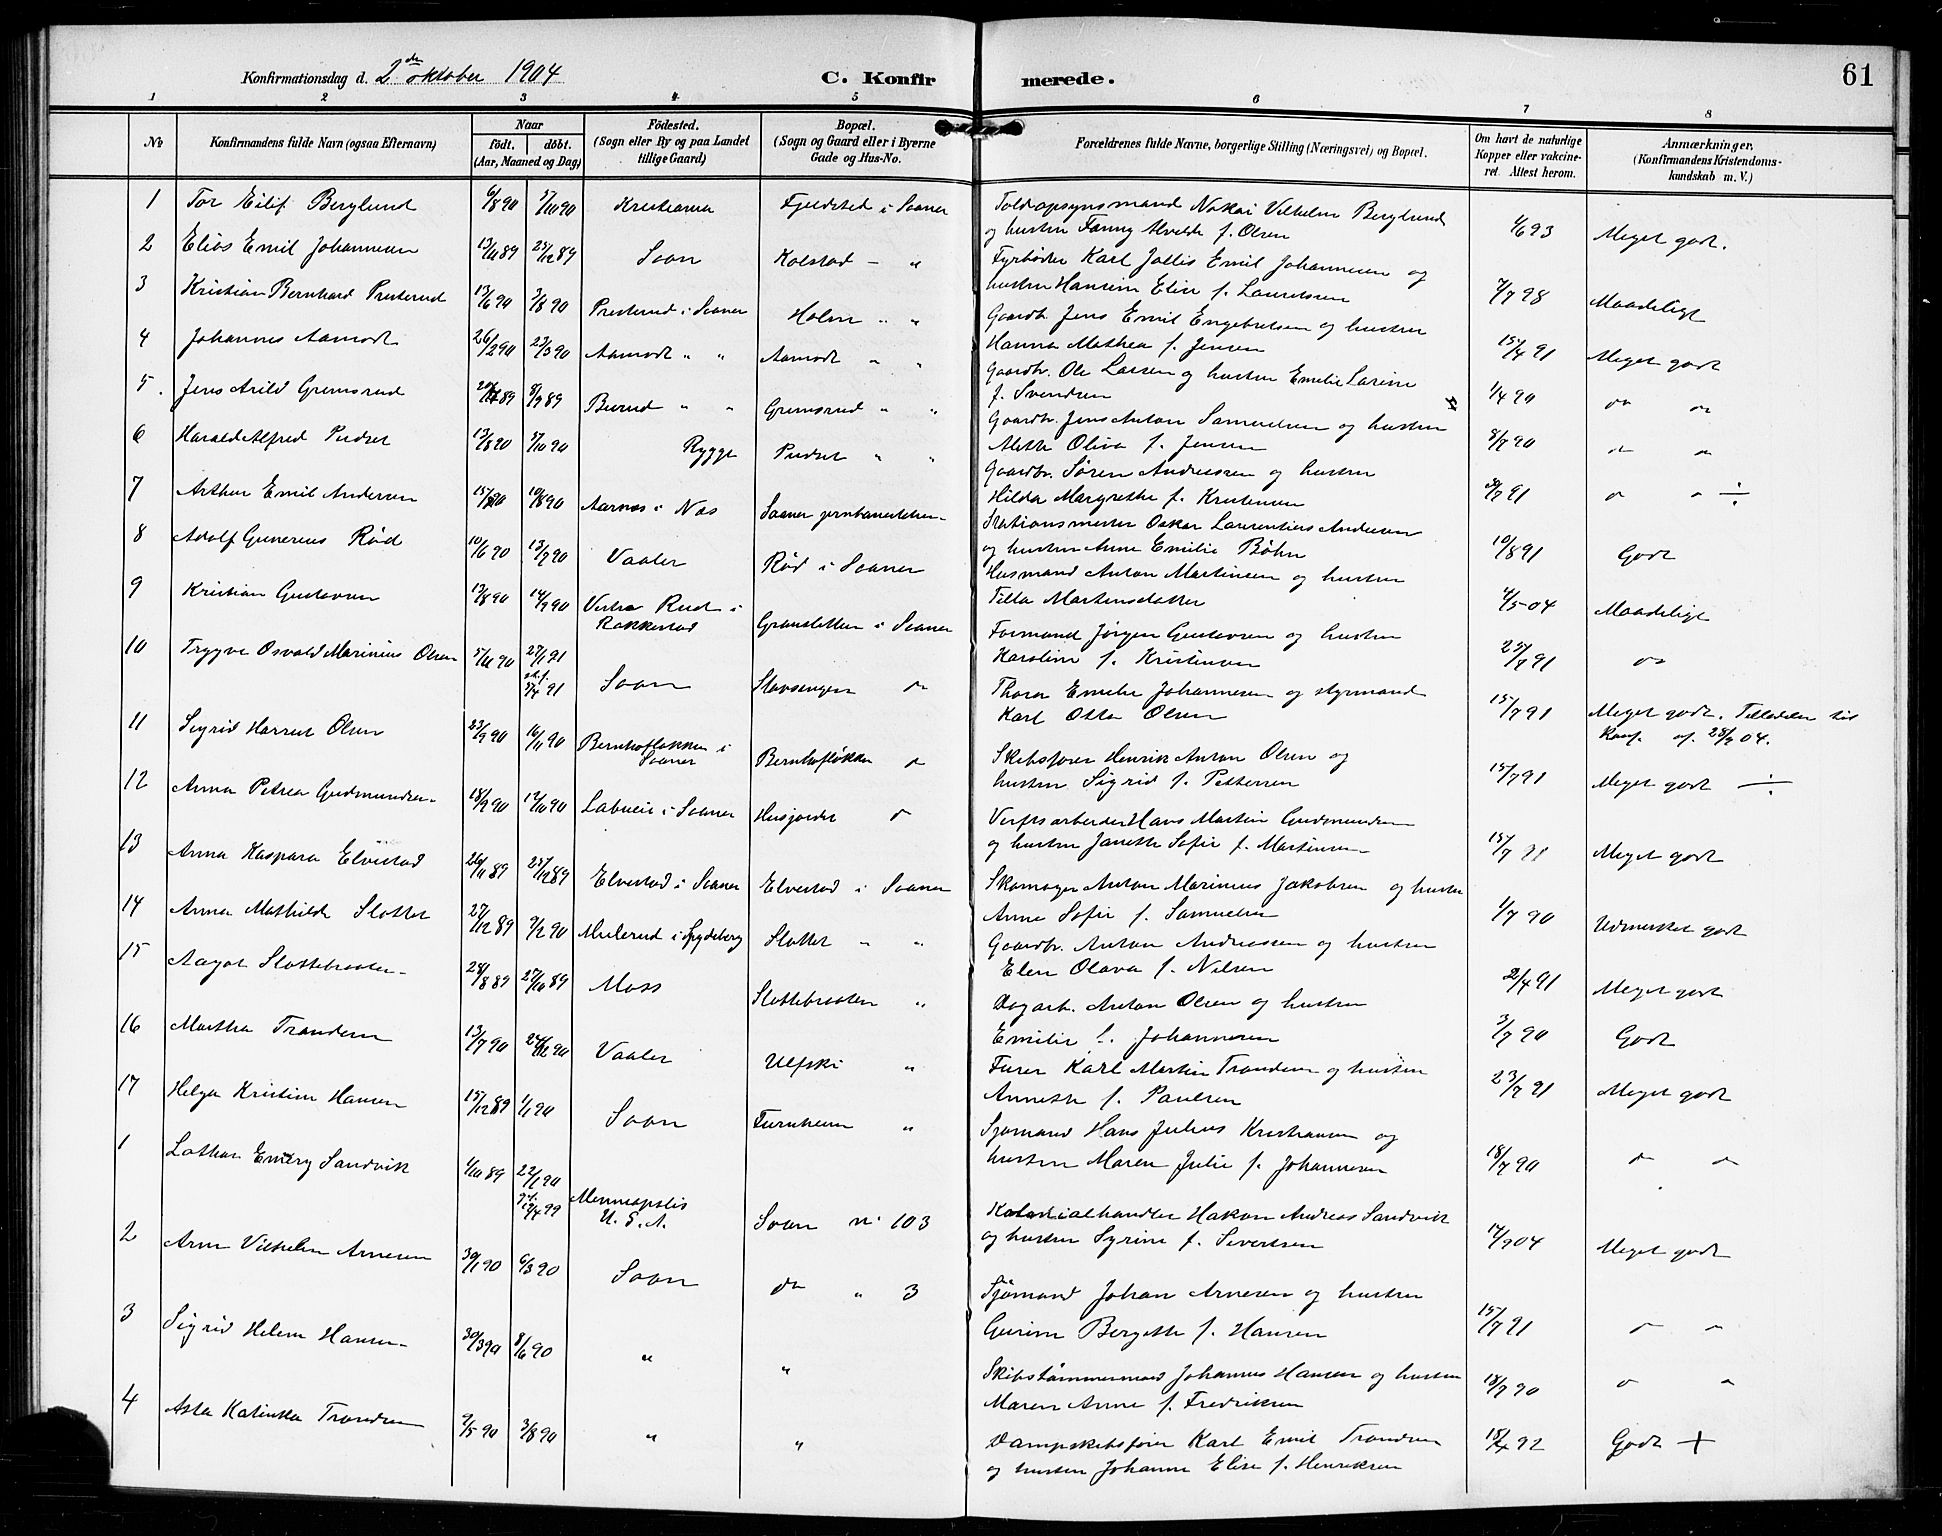 Konfirmationsdag d. 2den oktober 1904
C. Konfirmerede.
61
1 2 3 4 5 6 7 8
No
Konfirmandens fulde Navn (ogsaa Efternavn)
Naar
födt. döbt.
(Aar, Maaned og Dag)
Födested.
(Sogn eller By og paa Landet
tillige Gaard)
Bopæl.
(Sogn og Gaard eller i Byerne
Gade og Hus-No.
Forældrenes fulde Navne, borgerlige Stilling (Næringsvei) og Bopæl.
Om havt de naturlige
Kopper eller vakcine-
ret. Attest herom.
Anmærkninger.
(Konfirmandens Kristendoms-
kundskab m. V.)
1 Tor Eilif Berglund 6/8 90 5/10 90 Kristiania Fjeldsted i Saaner
Toldopsynsmand Vilhelm Berglund
og hustru Fanny Alvilde f. Olsen 1/6 93 Meget godt.
2 Elias Emil Johannesen 13/11 89 25/12 89 Soon Kolstad — "
Fyrböder Karl Emil Johannesen og
hustru Hansine Elise f. Lauritsen 7/7 98 Maadeligt
3 Kristian Bernhard Presterud 13/6 90 3/8 90 Presterud i Saaner Holm " "
Gaardbr. Jens Emil Engebretsen og hustru
Hanna Mathea f. Jensen 15/4 91 Meget godt
4 Johannes Aamodt 26/2 90 23/3 90 Aamodt " " Aamodt " "
Gaardbr. Ole Larsen og hustru Emelie Larine
f. Svendsen 1/4 90 do do
5. Jens Arild Gremsrud 8/9 89 " " Gremsrud " "
Gaardbr. Jens Anton Samuelsen og hustru
Alette Oliva f. Jensen 8/7 90
6 Harald Alfred Pudset 13/8 90 5/10 90 Rygge Pudset " "
Gaardbr. Søren Andreassen og hustru
Hilda Margrethe f. Kristensen ÷
7 Arthur Emil Andersen 10/8 90 Aarnes i Nes Saaner jernbanestation
Stationsmester Oskar Laurentius Andersen
og hustru Anne Emilie Bøhn 10/8 91 Godt
8 Adolf Gunerius Rød 10/6 90 13/7 90 Vaaler Rød i Saaner
Husmand Anton Martinsen og hustru
Tilla Martinsdatter 4/5 04 Maadeligt
9 Kristian Gustavsen 13/8 90 14/9 90 Vestre Rud i
Rakkestad Gransletten i Saaner
Formand Jörgen Gustavsen og hustru
Karoline f. Kristensen 25/7 91 do
10 Trygve Osvald Marinius Olsen 5/11 90 27/1 91
5/4 91 Soon Stavsengen do
Thora Emilie Johannesen og styrmand
Karl Otto Olsen 15/7 91 Meget godt. Tilladelse til
Konf. af 28/9 04.
11 Sigrid Harriet Olsen 23/9 90 16/11 90 Bernhofløkken i
Saaner Bernhofløkken do
Skibsfører Henrik Anton Olsen og
hustru Sigrid f. Pettersen 15/7 91 Meget godt ÷
12 Anna Petrea Gudmundsen 18/9 90 12/10 90 Labueie i Saaner Husjordet do
Verftsarbeder Hans Martin Gudmundsen
og hustru Janette Sofie f. Martinsen 15/7 91 Meget godt
13 Anna Kaspara Elvestad 26/11 89 25/12 89 Elvestad i Saaner Elvestad i Saaner
Skomager Anton Marinius Jakobsen og hustru
Anne Sofie f. Samuelsen 1/7 90 Udmerket godt
14 Anna Mathilde Slottet 27/12 89 9/2 90 Mulerud i Spydeberg Slottet " "
Gaardbr. Anton Andreassen og hustru
Elen Olava f. Nilsen 2/4 91 Meget godt
15 Aagot Slottebraaten 28/8 89 27/10 89 Moss Slottebraaten "
Dagarb. Anton Olsen og hustru
Emilie f. Johannesen 3/7 90 Godt
16 Martha Trandem 13/7 90 Vaaler Ulfski "
Furer Karl Martin Trandem og hustru
Annette f. Paulsen 23/7 91 Meget godt
17 Helga Kristine Hansen 15/12 89 1/1 90 Soon Furuheim "
Sjømand Hans Julius Kristiansen og
hustru Maren Julie f. Johannesen 18/7 90 do do
1 Lothar Emery Sandvik 1/10 89 22/1 90
9/4 99 Menneapolis
U. S. A. Soon No 103
Kolonialhandler Hakon Andreas Sandvik
og hustru Syrine f. Severtsen 14/9 04 Meget godt
2 Arne Vilhelm Arnesen 30/1 90 6/3 90 Soon do " 3
Sjömand Johan Arnesen og hustru
Gurine Bergette f. Hansen 15/7 91 do do
3 Sigrid Helene Hansen 30/3 90 8/6 90 " "
Skibstømmermand Johannes Hansen og hustru
Maren Anne f. Fredriksen 18/7 90 do do
4 Asta Katinka Trondsen 9/5 90 3/8 90 " "
Dampskibsfører Karl Emil Trondsen
og hustru Johanne Elise f. Henriksen 18/4 92 Godt +